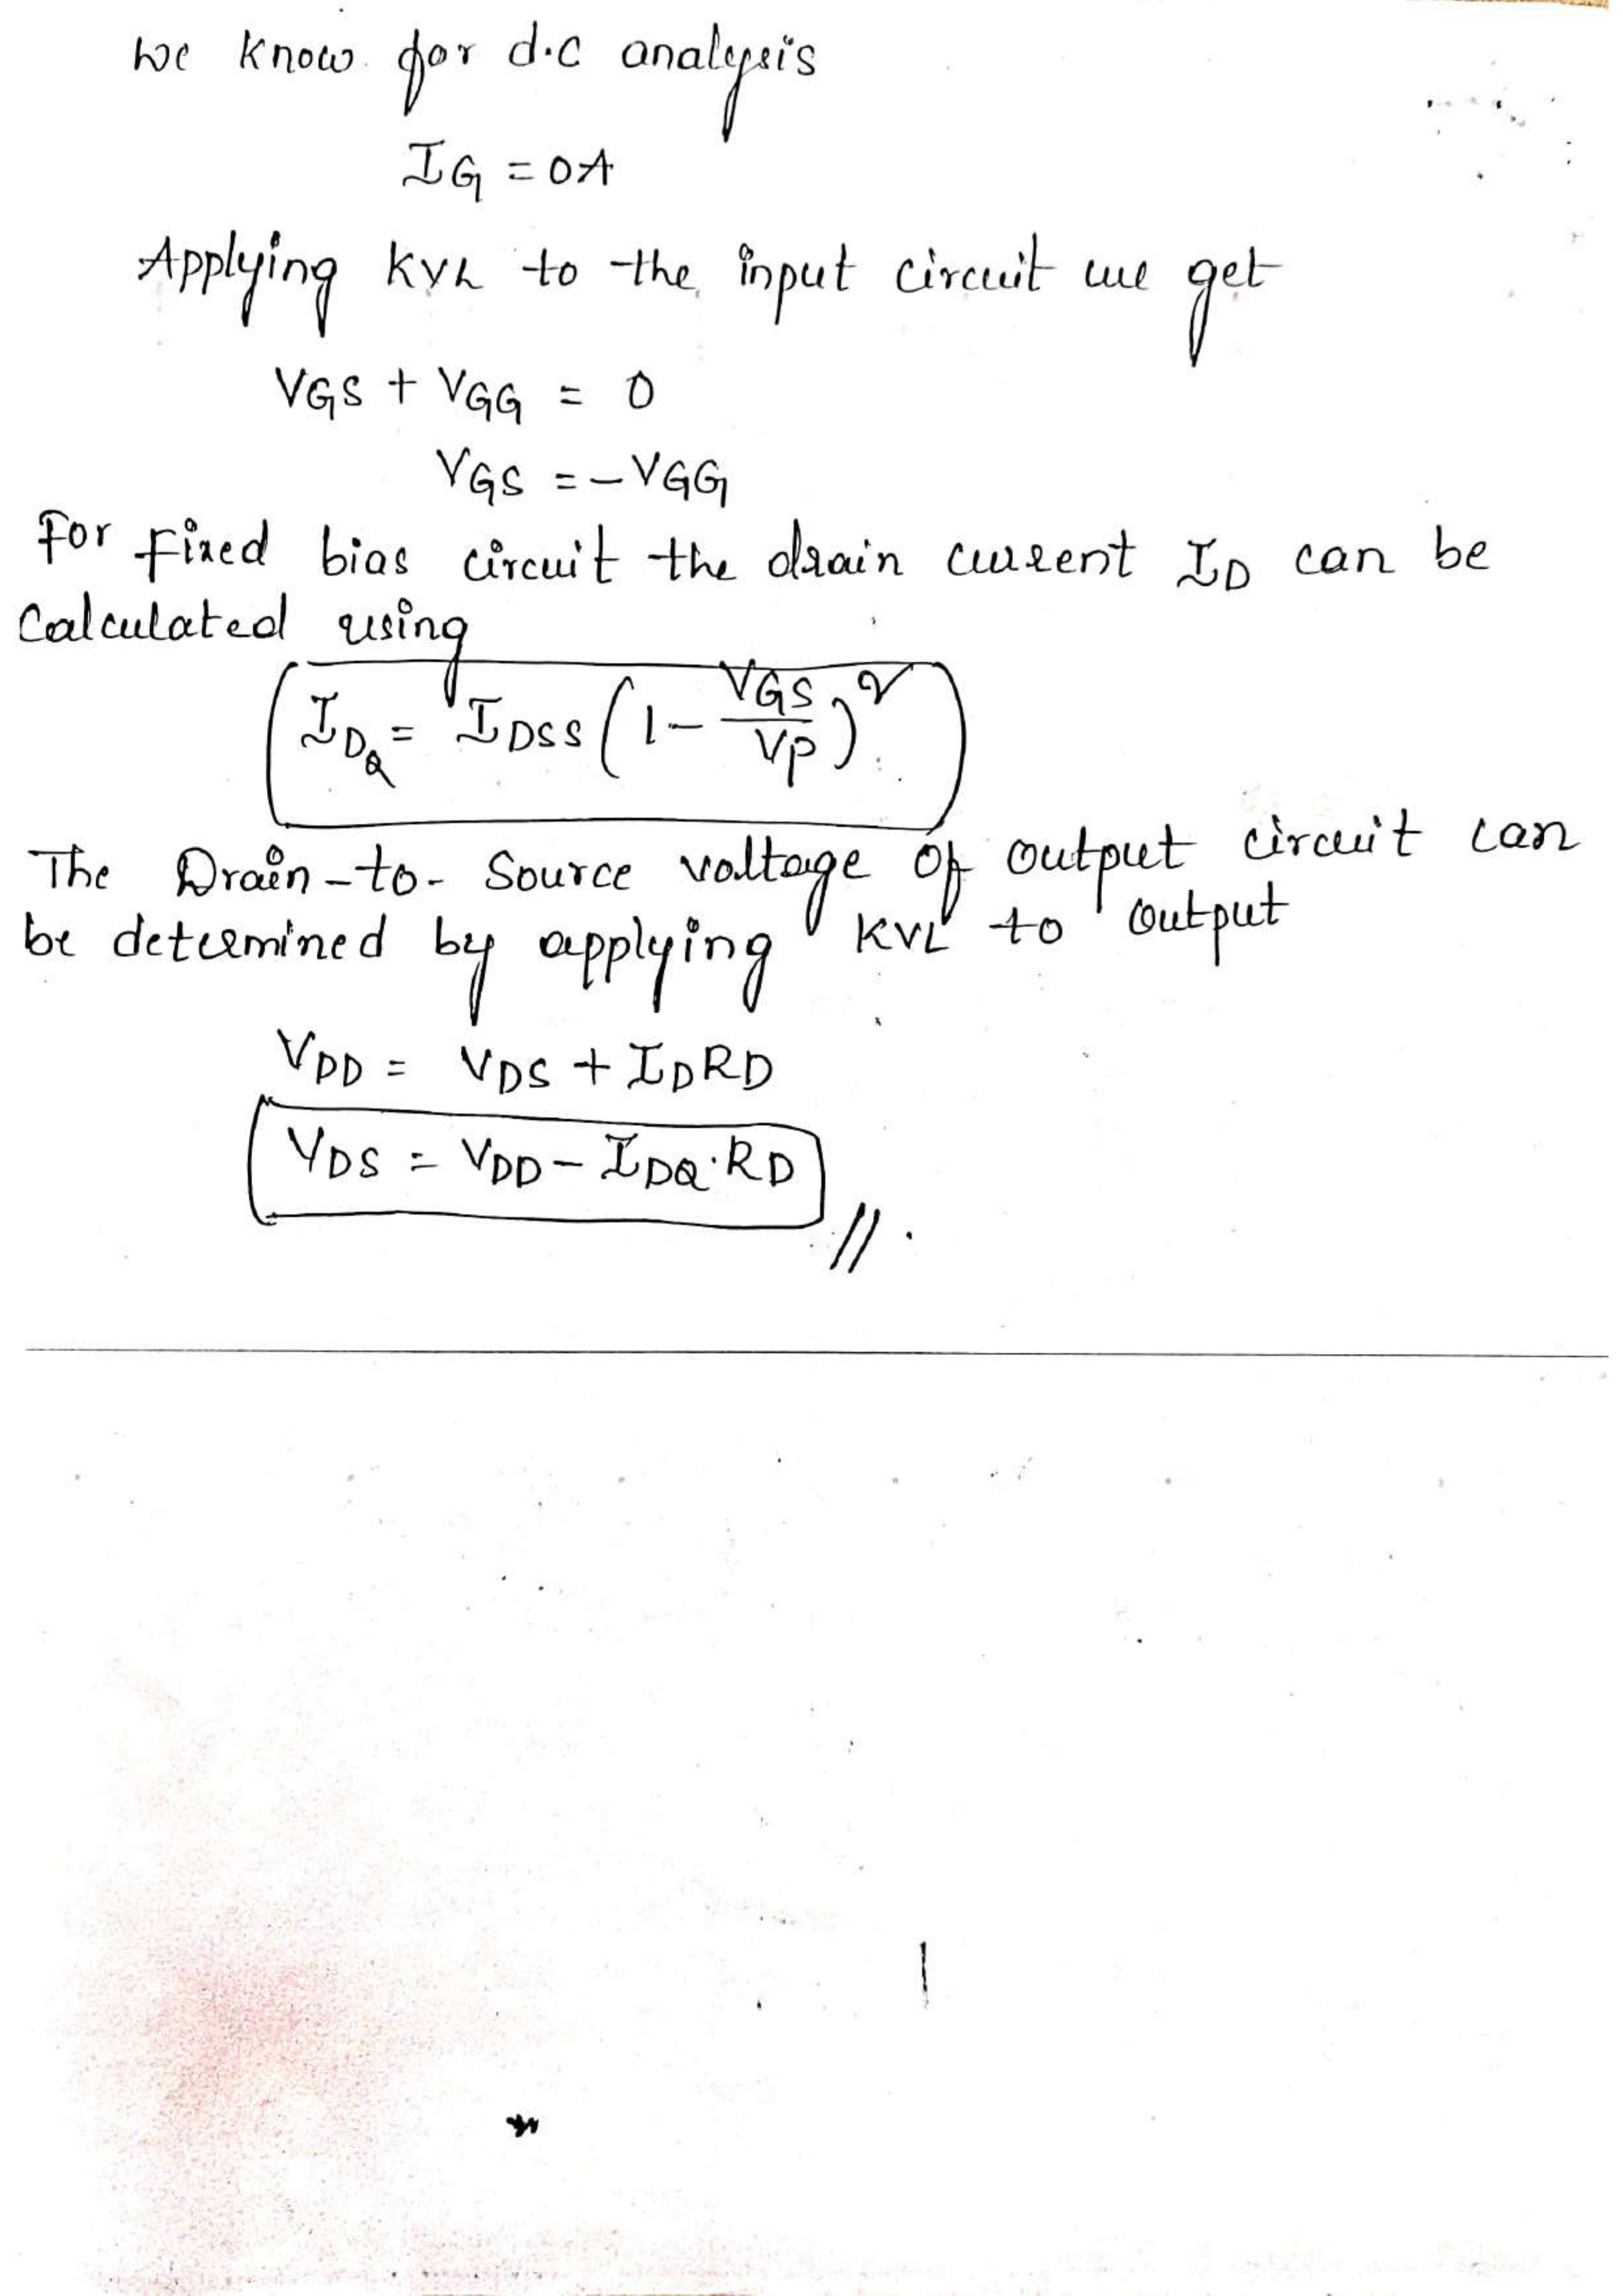 we know for d.c analysis
IG = 0A
Applying KVL to the input circuit we get
VGS + VGG = 0
VGS = -VGG
For Fixed bias circuit the drain current ID can be
Calculated using
IDQ = IDSS (1 - VGS/VP)²
The Drain-to-Source voltage of output circuit can
be determined by applying KVL to output
VDD = VDS + IDRD
VDS = VDD - IDQ.RD //.